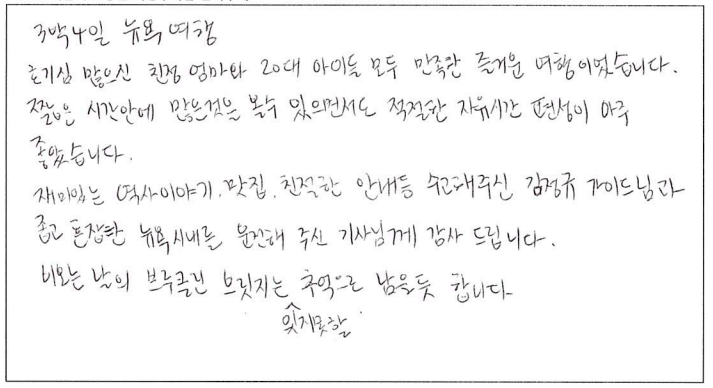 3박4일 뉴욕여행
호기심 많으신 친정 엄마와 20대 아이들 모두 만족한 즐거운 여행이었습니다.
짧은 시간안에 많은것을 볼수 있으면서도 적절한 자유시간 편성이 아주
좋았습니다.
재미있는 역사이야기, 맛집, 친절한 안내등 수고해주신 김정규 가이드님과
좁고 혼잡한 뉴욕시내를 운전해 주신 기사님께 감사 드립니다.
비오는 날의 브루클린 브릿지는 추억으로 남을듯 합니다
잊지못할